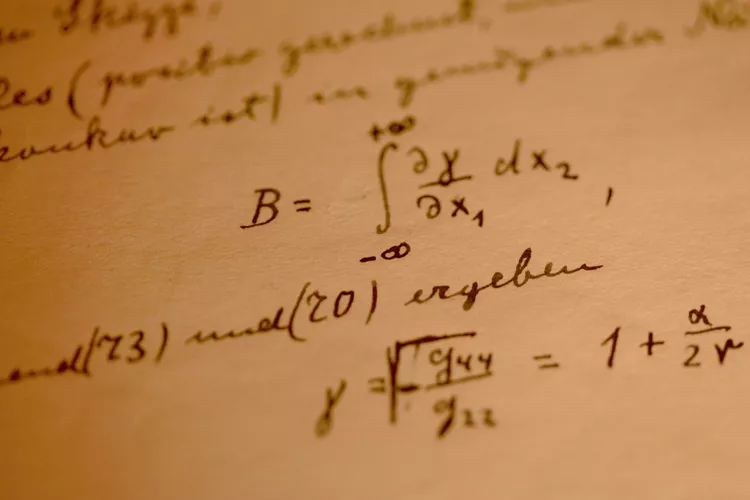 Skizze,
les (positiv gerechnet,
konkav ist) in genügender Nä
B = ∫_{-∞}^{+∞} ∂γ/∂x₁ dx₂ ,
und (73) und (70) ergeben
γ = √(-g₄₄/g₂₂) = 1 + α/2r